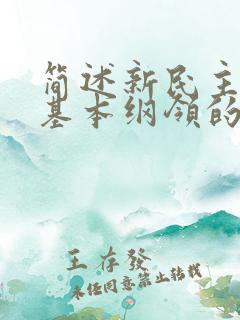 简述新民主
基本纲领的
王存發
未经同意禁止转载